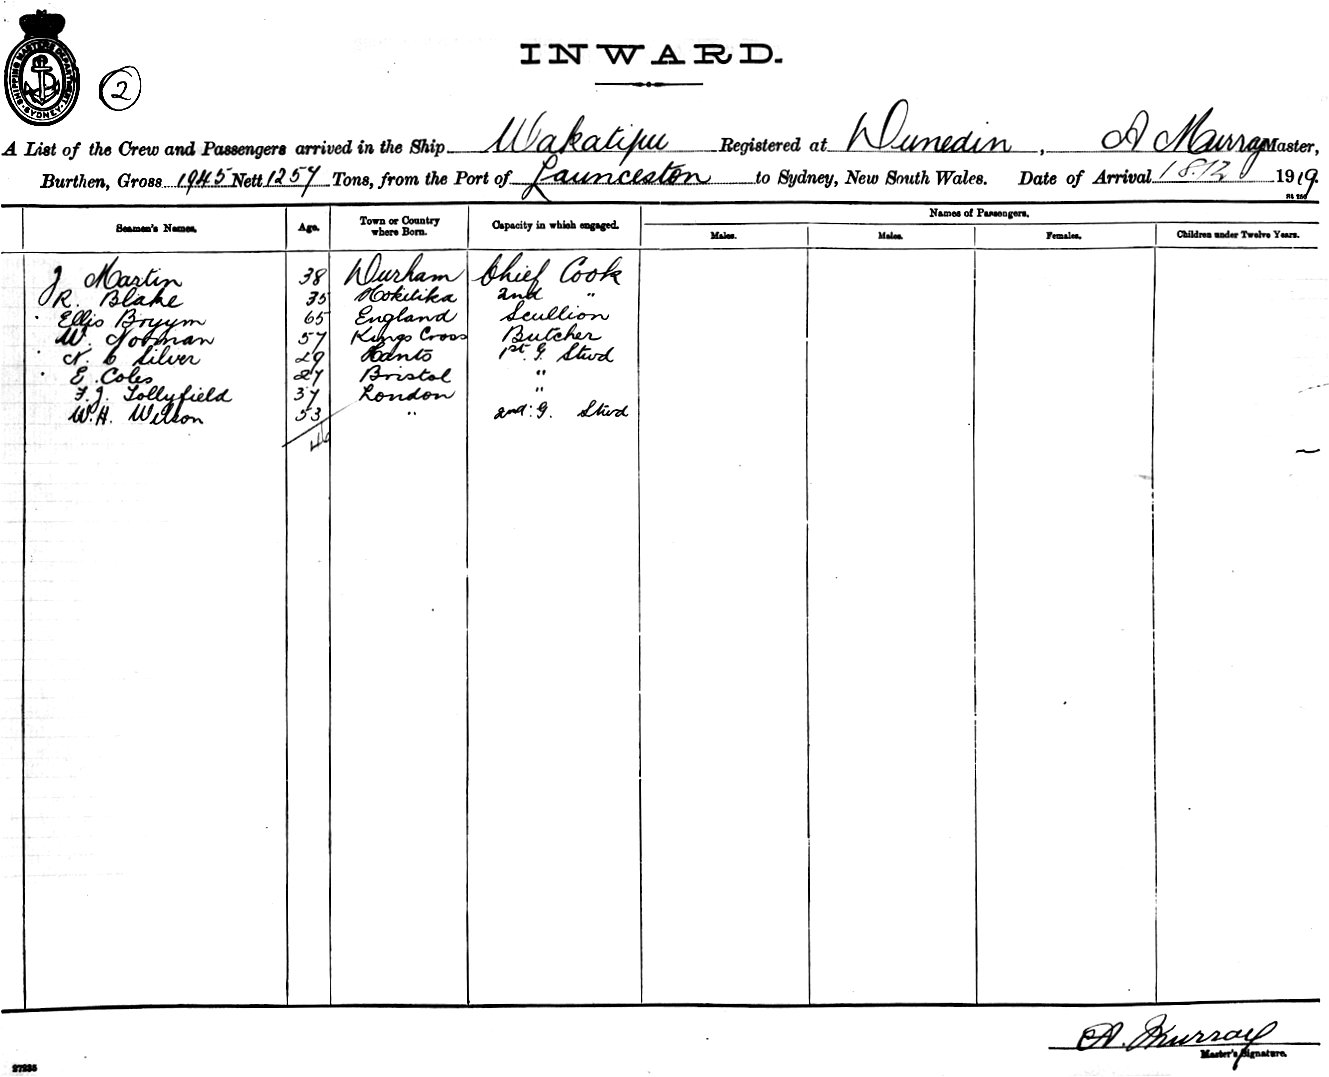 SHIPPING MASTERS DEPARTMENT SYDNEY
2
INWARD.
A List of the Crew and Passengers arrived in the Ship Wakatipu Registered at Dunedin, A Murray Master,
Burthen, Gross 1945 Nett 1257 Tons, from the Port of Launceston to Sydney, New South Wales. Date of Arrival 18.12 1919.
Names of Passengers.
Seamen's Names. Age. Town or Country where Born. Capacity in which engaged. Males. Males. Females. Children under Twelve Years.
J Martin 38 Durham Chief Cook
R. Blake 35 Hokitika 2nd "
Ellis 65 England Scullion
W. Norman 57 Kings Cross Butcher
C Silver 29 Hants 1st G. Stwd
E. Coles 27 Bristol "
F.J. Tollyfield 37 London "
W.H. Wilson 53 " 2nd G. Stwd
46
A. Murray
Master's Signature.
27235